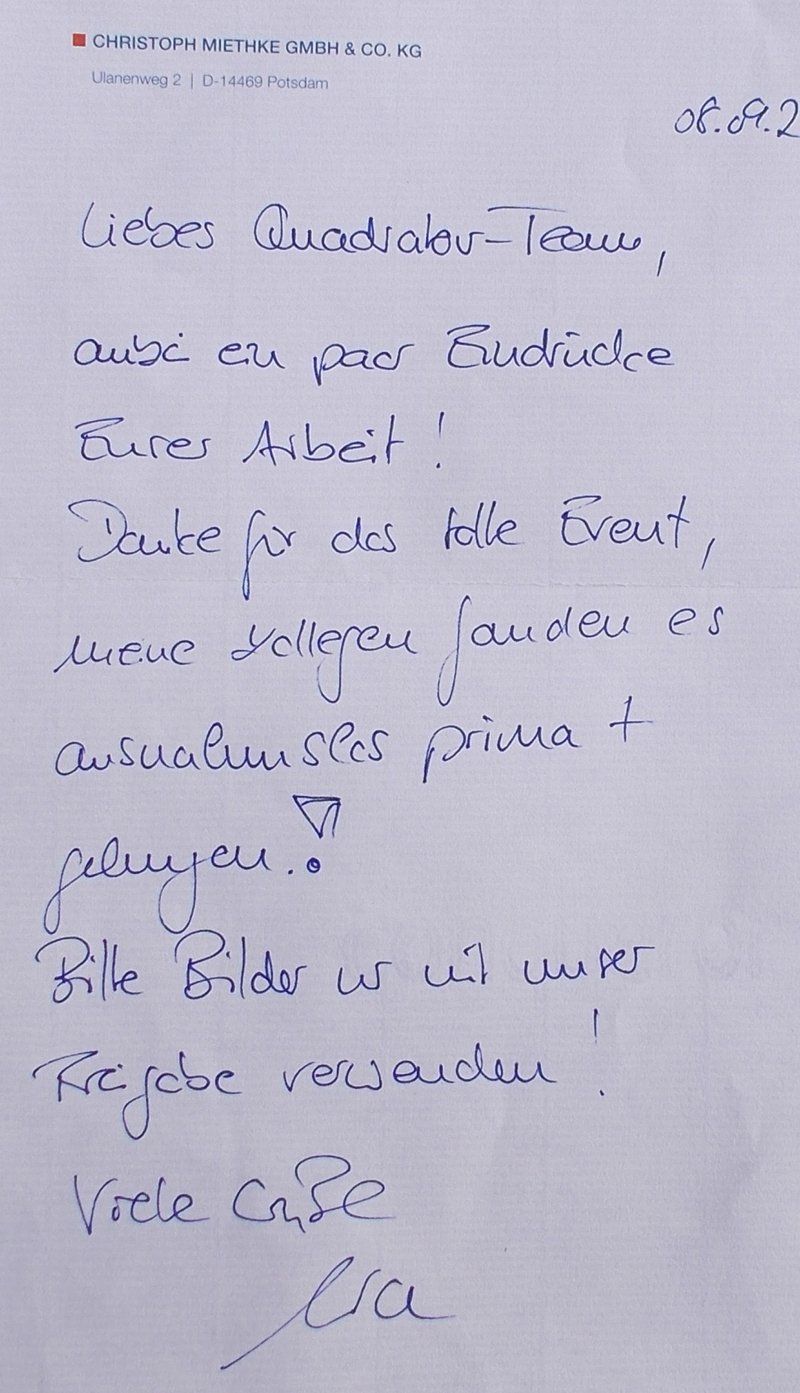 CHRISTOPH MIETHKE GMBH & CO. KG
Ulanenweg 2 | D-14469 Potsdam
08.09.2
Liebes Quadrator-Team,
anbei ein paar Eindrücke
Eurer Arbeit!
Danke für das tolle Event,
meine Kollegen fanden es
ausnahmslos prima +
gelungen.!
Bitte Bilder nur mit unser
Freigabe verwenden!
Viele Grüße